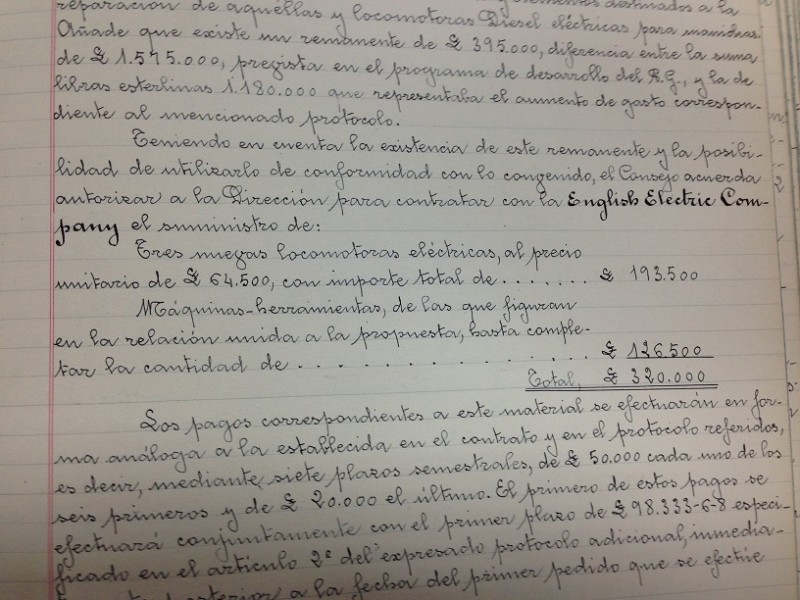 reparación de aquéllas y locomotoras Diesel eléctricas para maniobras.
Añade que existe un remanente de £ 395.000, diferencia entre la suma
de £ 1.575.000, prevista en el programa de desarrollo del R.G., y la de
libras esterlinas 1.180.000 que representaba el aumento de gasto correspon-
diente al mencionado protócolo.
Teniendo en cuenta la existencia de este remanente y la posibi-
lidad de utilizarlo de conformidad con lo convenido, el Consejo acuerda
autorizar a la Dirección para contratar con la English Electric Com-
pany el suministro de:
Tres nuevas locomotoras eléctricas, al precio
unitario de £ 64.500, con importe total de . . . . . . . £ 193.500
Máquinas-herramientas, de las que figuran
en la relación unida a la propuesta, hasta comple-
tar la cantidad de . . . . . . . . . . . . . . . £ 126.500
Total, £ 320.000
Los pagos correspondientes a este material se efectuarán en for-
ma análoga a la establecida en el contrato y en el protócolo referidos,
es decir, mediante siete plazos semestrales, de £ 50.000 cada uno de los
seis primeros y de £ 20.000 el último. El primero de estos pagos se
efectuará conjuntamente con el primer plazo de £ 98.333-6-8 especi-
ficado en el artículo 2º del expresado protócolo adicional, inmedia-
posterior a la fecha del primer pedido que se efectúe